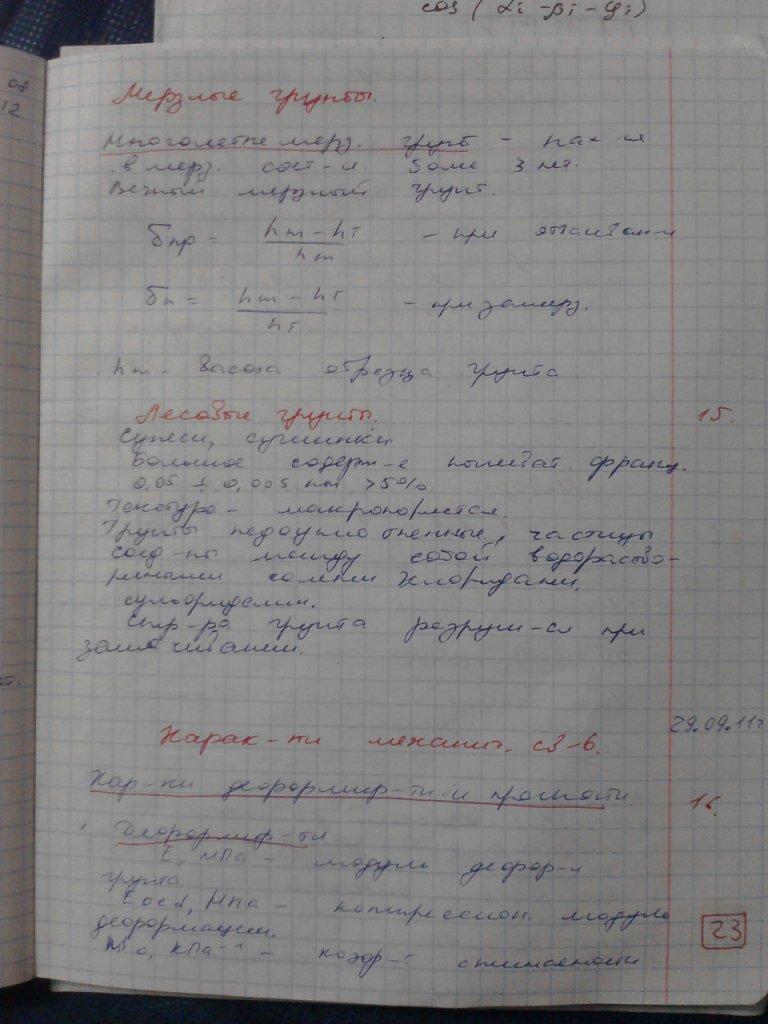 cos ( αi - βi - φi)
об
12
Мерзлые грунты.
Многолетне мерз. грунт - нах-ся
в мерз. сост-и более 3 лет.
Вечный мерзлый грунт.
δпр = (hm - hт) / hm - при оттаиван-и
δп = (hm - hт) / hт - при замерз.
hm - высота образца грунта
Лесовые грунты. 15.
Супеси, суглинки
Большое содерж-е пылеват. фракц.
0,05 ÷ 0,005 мм >50%
Текстура - макропористая.
Грунты недоуплотненные, частицы
соед-ны между собой водораство-
римыми солями хлоридами,
сульфидами.
Стр-ра грунта разруш-ся при
замачивании.
29.09.11г
Харак-ти механич. св-в.
Хар-ки деформир-ти и прочности. 16.
Деформир-ти
E, МПа - модуль дефор-и
грунта
Eoed, МПа - компрессион. модуль
деформации.
m0, кПа⁻¹ - коэф-т сжимаемости
23